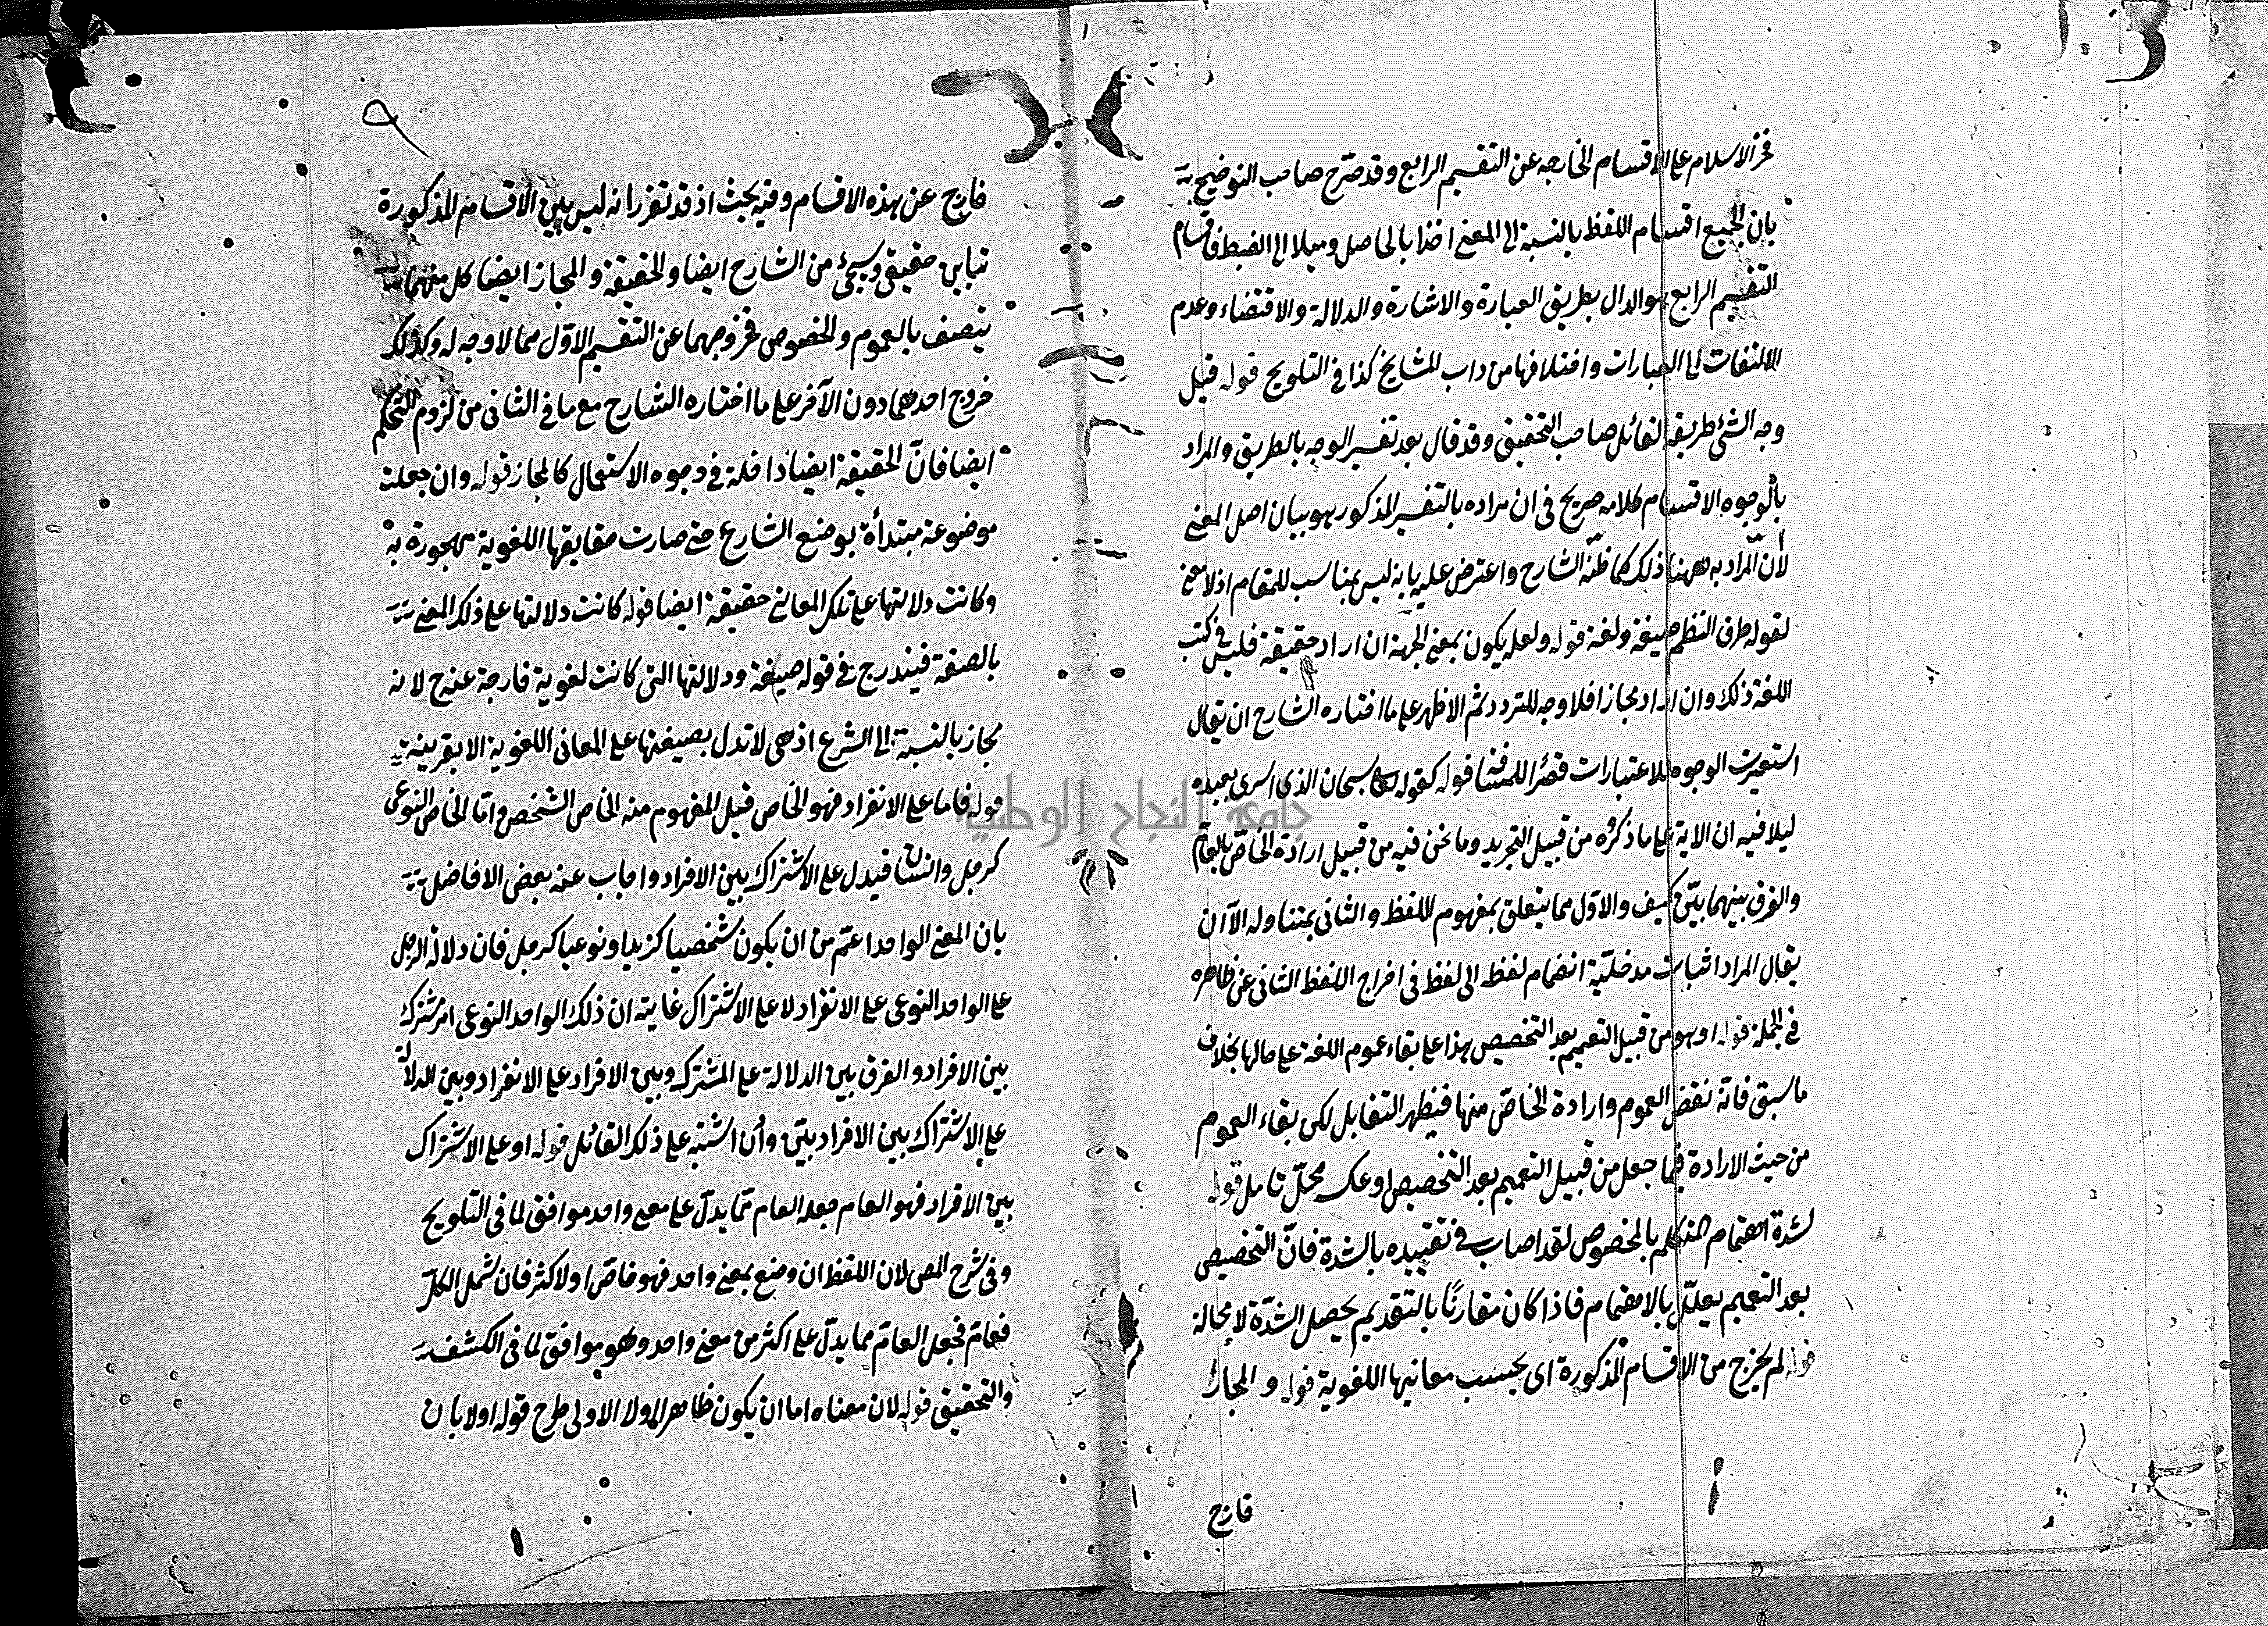 فخر الاسلام على الاقسام الخارجه عن التقسيم الرابع وقد صرّح صاحب التوضيح
بان الجميع اقسام اللفظ بالنسبة الى المعنى اخذا بالحاصل وميلا الى الضبط فاقسام
التقسيم الرابع هو الدال بطريق العبارة والاشارة والدلالة والاقتضاء وعدم
الالتفات الى العبارات واختلافها من داب المشايخ كذا في التلويح قوله قيل
وجه الشئ طريقه القائل صاحب التحقيق وقد قال بعد تفسير الوجه بالطريق والمراد
بالوجوه الاقسام كلامه صريح في ان مراده بالتفسير المذكور هو بيان اصل المعنى
لأن المراد به ههنا ذلك كما ظنّه الشارح واعترض عليه بانه ليس بمناسب للمقام اذ لا معنى
لقوله طرق النظم صيغة ولغة قوله ولعله يكون بمعنى الجهة ان اراد حقيقة فليس في كتب
اللغة ذلك وان اراد مجازا فلا وجه للتردد ثم الاظهر على ما اختاره الشارح ان يقال
استعيرت الوجوه للاعتبارات قصرا للمسافة قوله كقوله تعالى سبحان الذي اسرى بعبده
ليلا فيه ان الاية على ما ذكروه من قبيل التجريد وما نحن فيه من قبيل ارادة الخاصّ بالعامّ
والفرق بينهما بيّن كيف والاوّل مما يتعلق بمفهوم اللفظ والثاني بمتناوله الا ان
يقال المراد اثبات مدخليّة انضمام لفظ الى لفظ في اخراج اللفظ الثاني عن ظاهره
في الجملة قوله او هو من قبيل التعميم بعد التخصيص هذا على بقاء عموم اللغة على حالها بخلاف
ما سبق فانّه نقض العموم وارادة الخاصّ منها فيظهر التقابل لكن بقاء العموم
من حيث الارادة فيما جعل من قبيل التعميم بعد التخصيص او عكسه محلّ تامل قوله
لشدة اهتمام المتكلم بالخصوص لقد اصاب في تقييده بالشدة فانّ التخصيص
بعد التعميم يعلّل بالاهتمام فاذا كان مقارنًا بالتقديم يحصل الشدّة لا محالة
قوله لم يخرج من الاقسام المذكورة اى بحسب معانيها اللغوية قوله والمجاز
خارج
٩
خارج عن هذه الاقسام وفيه بحث اذ قد تقرر انه ليس بين الاقسام المذكورة
تباين حقيقي وسيجئ من الشارح ايضا والحقيقة والمجاز ايضا كل منهما
يتصف بالعموم والخصوص فخروجهما عن التقسيم الاوّل مما لا وجه له وكذلك
خروج احدهما دون الآخر على ما اختاره الشارح مع ما في الثاني من لزوم التحكم
ايضا فانّ الحقيقة ايضا داخلة في وجوه الاستعمال كالمجاز قوله وان جعلت
موضوعة مبتدأة بوضع الشارع حتى صارت حقايقها اللغوية مهجورة به
وكانت دلالتها على تلك المعاني حقيقة ايضا قوله كانت دلالتها على ذلك المعنى
بالصيغة فيندرج في قوله صيغة ودلالتها التي كانت لغوية خارجة عنه ح لانه
مجاز بالنسبة الى الشرع اذ هى لا تدل بصيغتها على المعاني اللغوية الا بقرينة
قوله فاما على الانفراد فهو الخاص قيل المفهوم منه الخاص الشخصى واما الخاص النوعى
كرجل وانسان فيدل على الاشتراك بين الافراد واجاب عنه بعض الافاضل
بان المعنى الواحد اعمّ من ان يكون شخصيا كزيد او نوعيا كرجل فان دلالة الرجل
على الواحد النوعى على الانفراد لا على الاشتراك غايته ان ذلك الواحد النوعى امر مشترك
بين الافراد والفرق بين الدلالة على المشترك وبين الافراد على الانفراد وبين الدلالة
على الاشتراك بين الافراد بيّن وأن اشتبه على ذلك القائل قوله او على الاشتراك
بين الافراد فهو العام جعله العام ممّا يدلّ على معنى واحد موافق لما في التلويح
وفى شرح المص لان اللفظ ان وضع بمعنى واحد فهو خاصّ او لاكثر فان شمل الكلّ
فعامّ فجعل العامّ مما يدلّ على اكثر من معنى واحد وهو موافق لما في الكشف
والتحقيق قوله لان معناه اما ان يكون ظاهرا اولا الاولى طرح قوله اولا بان
جامعة النجاح الوطنية